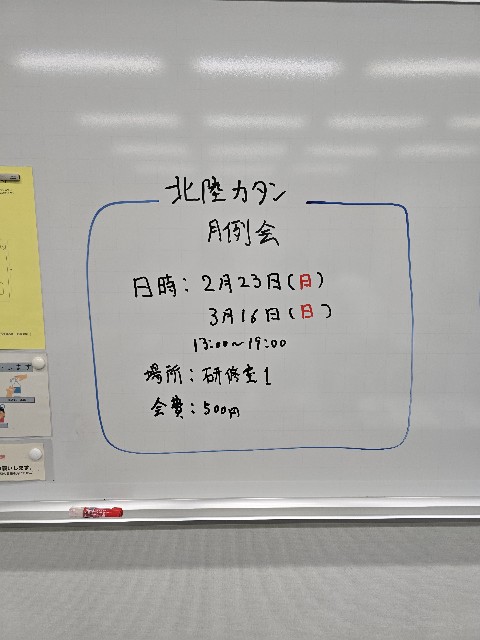 北陸カタン
月例会
日時：2月23日(日)
3月16日(日)
13:00～19:00
場所：研修室1
会費：500円
します
い願いします。